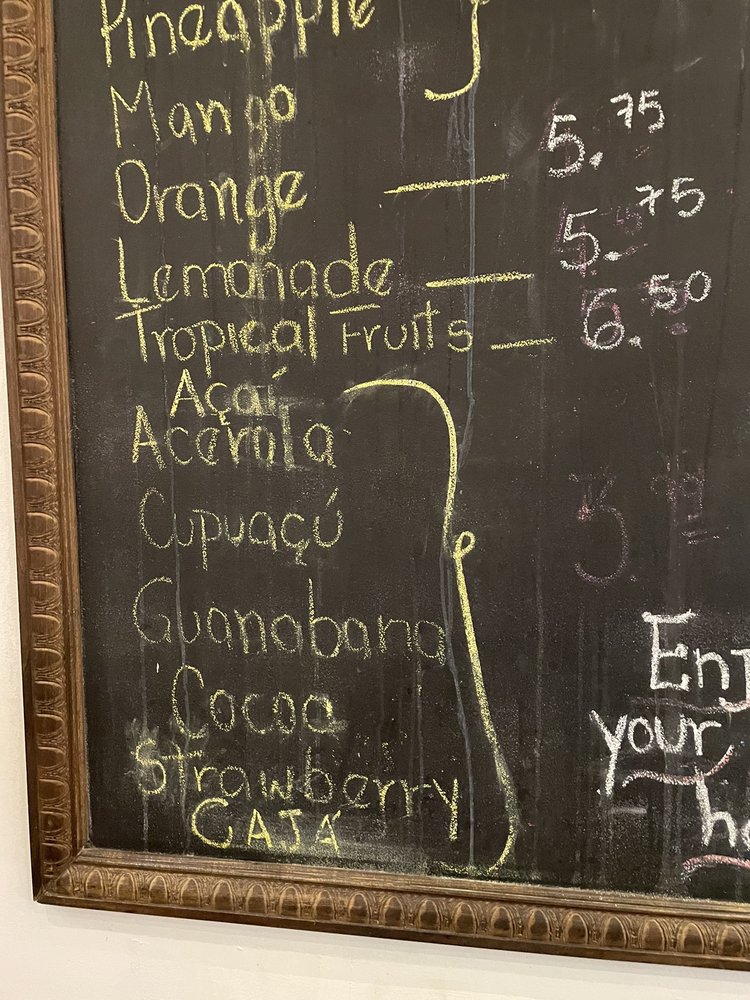 Pineapple
Mango
Orange — 5.75
Lemonade — 5.75
Tropical Fruits — 6.50
Açaí
Acerola
Cupuaçú
Guanabana
Cocoa
Strawberry
CAJÁ
Enj
your
he